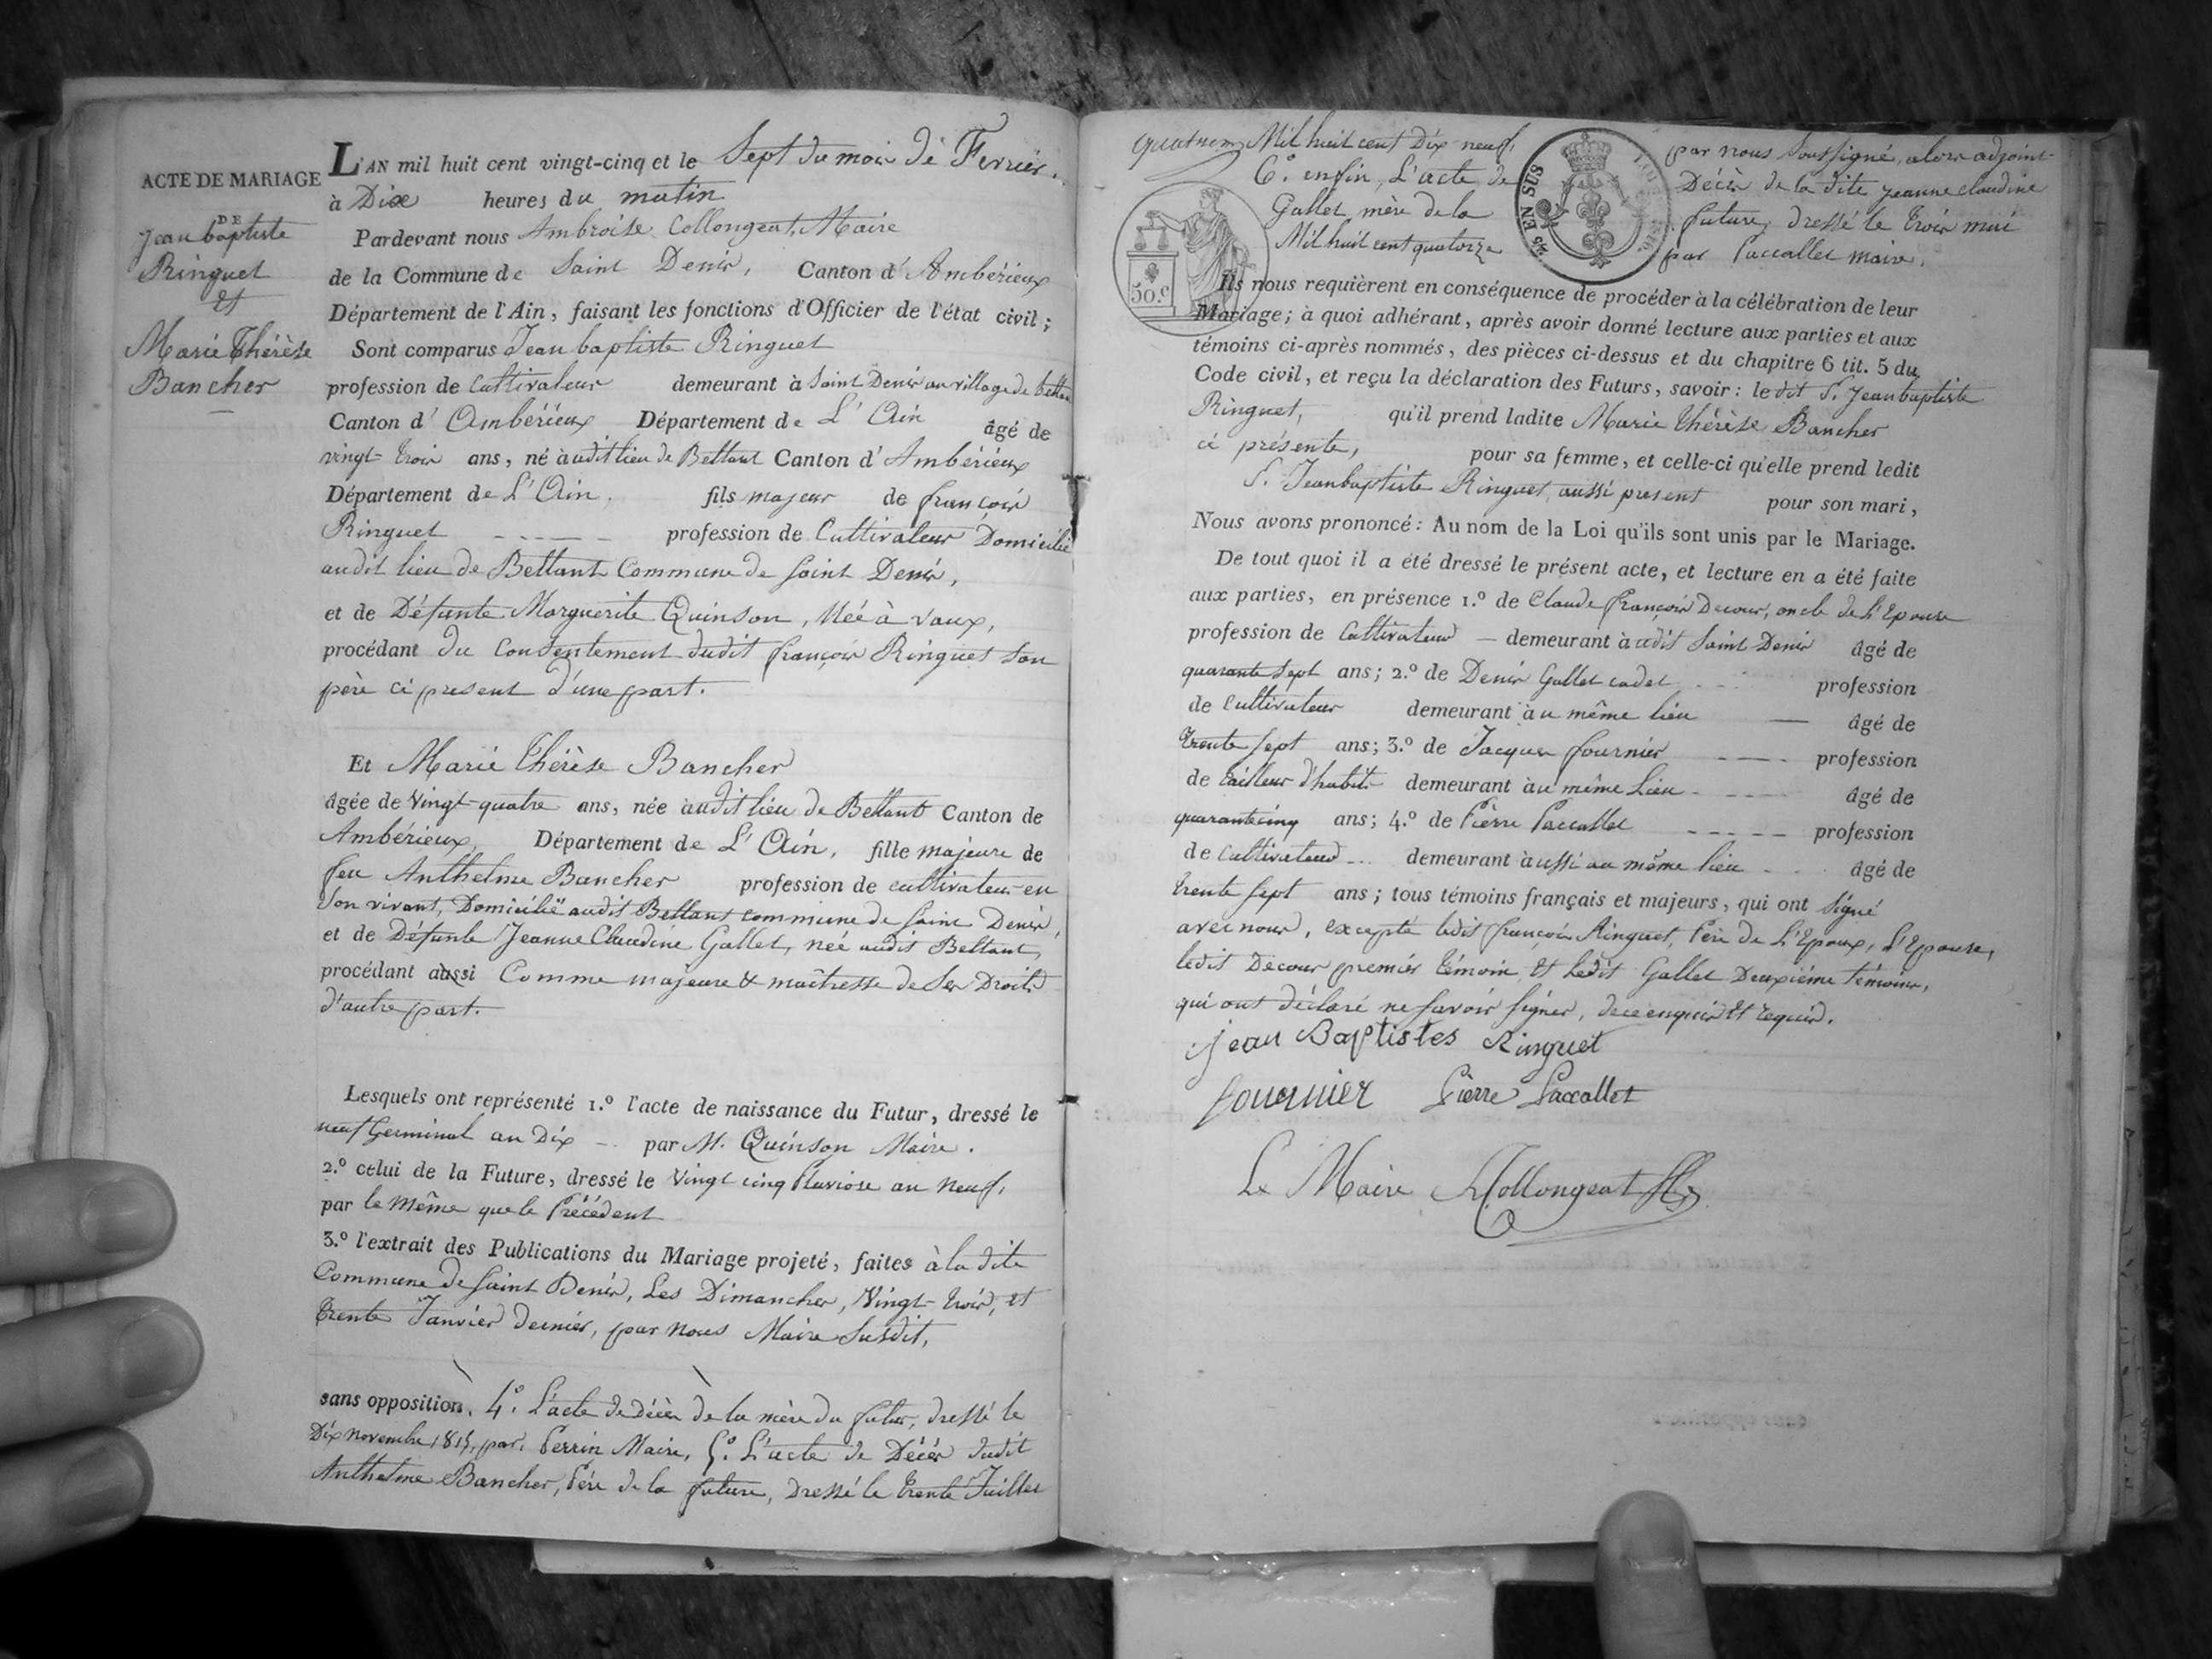 ACTE DE MARIAGE
DE
Jean baptiste
Ringuet
et
Marie Thérèse
Bancher
L'AN mil huit cent vingt-cinq et le Sept du mois de Fevrier.
à Dix heures du matin
Pardevant nous Ambroise Collongeat, Maire
de la Commune de Saint Denis, Canton d'Ambérieux
Département de l'Ain, faisant les fonctions d'Officier de l'état civil;
Sont comparus Jean baptiste Ringuet
profession de Cultivateur demeurant à Saint Denis au village de Bettan
Canton d'Ambérieux Département de L'Ain âgé de
vingt-trois ans, né audit lieu de Bettant Canton d'Ambérieux
Département de L'Ain, fils majeur de françois
Ringuet profession de Cultivateur Domicilié
audit lieu de Bettant Commune de Saint Denis,
et de Défunte Marguerite Quinson, Née à Vaux,
procédant du Consentement dudit françois Ringuet Son
père ci present d'une part.
Et Marie Thérèse Bancher
âgée de Vingt-quatre ans, née audit lieu de Bettant Canton de
Ambérieux, Département de L'Ain, fille majeure de
feu Anthelme Bancher profession de cultivateur en
Son vivant, Domicilié audit Bettant commune de Saint Denis,
et de Défunte Jeanne Claudine Gallet, née audit Bettant,
procédant aussi Comme majeure & maîtresse de Ses Droits
d'autre part.
Lesquels ont représenté 1.º l'acte de naissance du Futur, dressé le
neuf Germinal an Dix par M. Quinson Maire.
2.º celui de la Future, dressé le Vingt cinq Pluviose an Neuf,
par le Même que le Précédent
3.º l'extrait des Publications du Mariage projeté, faites à la dite
Commune de Saint Denis, Les Dimanches, Vingt-trois, et
trente Janvier dernier, par Nous Maire Susdit,
sans opposition. 4º. L'acte de Décès de la mère du futur, dressé le
Dix novembre, par Perrin Maire, 5º. L'acte de Décès dudit
Anthelme Bancher, Père de la future, dressé le trente Juillet
Mil huit cent Dix neuf, par nous Soussigné, alors adjoint
6º. enfin, L'acte de Décès de la dite Jeanne Claudine
Gallet mère de la future, dressé le trois mai
Mil huit cent quatorze par Paccallet maire.
50.C
EN SUS
Ils nous requièrent en conséquence de procéder à la célébration de leur
Mariage; à quoi adhérant, après avoir donné lecture aux parties et aux
témoins ci-après nommés, des pièces ci-dessus et du chapitre 6 tit. 5 du
Code civil, et reçu la déclaration des Futurs, savoir: le dit S. Jean baptiste
Ringuet, qu'il prend ladite Marie Thérèse Bancher
ci présente, pour sa femme, et celle-ci qu'elle prend ledit
S. Jean baptiste Ringuet, aussi present pour son mari,
Nous avons prononcé: Au nom de la Loi qu'ils sont unis par le Mariage.
De tout quoi il a été dressé le présent acte, et lecture en a été faite
aux parties, en présence 1.º de Claude françois Decour, oncle de L'Epouse
profession de Cultivateur demeurant audit Saint Denis âgé de
quarante Sept ans; 2.º de Denis Gallet cadet profession
de Cultivateur demeurant au même lieu âgé de
trente Sept ans; 3.º de Jacques fournier profession
de tailleur d'habits demeurant au même Lieu âgé de
quarante cinq ans; 4.º de Pierre Paccallet profession
de Cultivateur demeurant aussi au même lieu âgé de
trente Sept ans; tous témoins français et majeurs, qui ont Signé
avec nous, excepté ledit françois Ringuet, Père de L'Epoux, L'Epouse,
ledit Decour premier témoin, et Ledit Gallet Deuxième témoin,
qui ont déclaré ne Savoir Signer, de ce enquis et requis.
jean Baptistes Ringuet
fournier Pierre Paccallet
Le Maire Collongeat